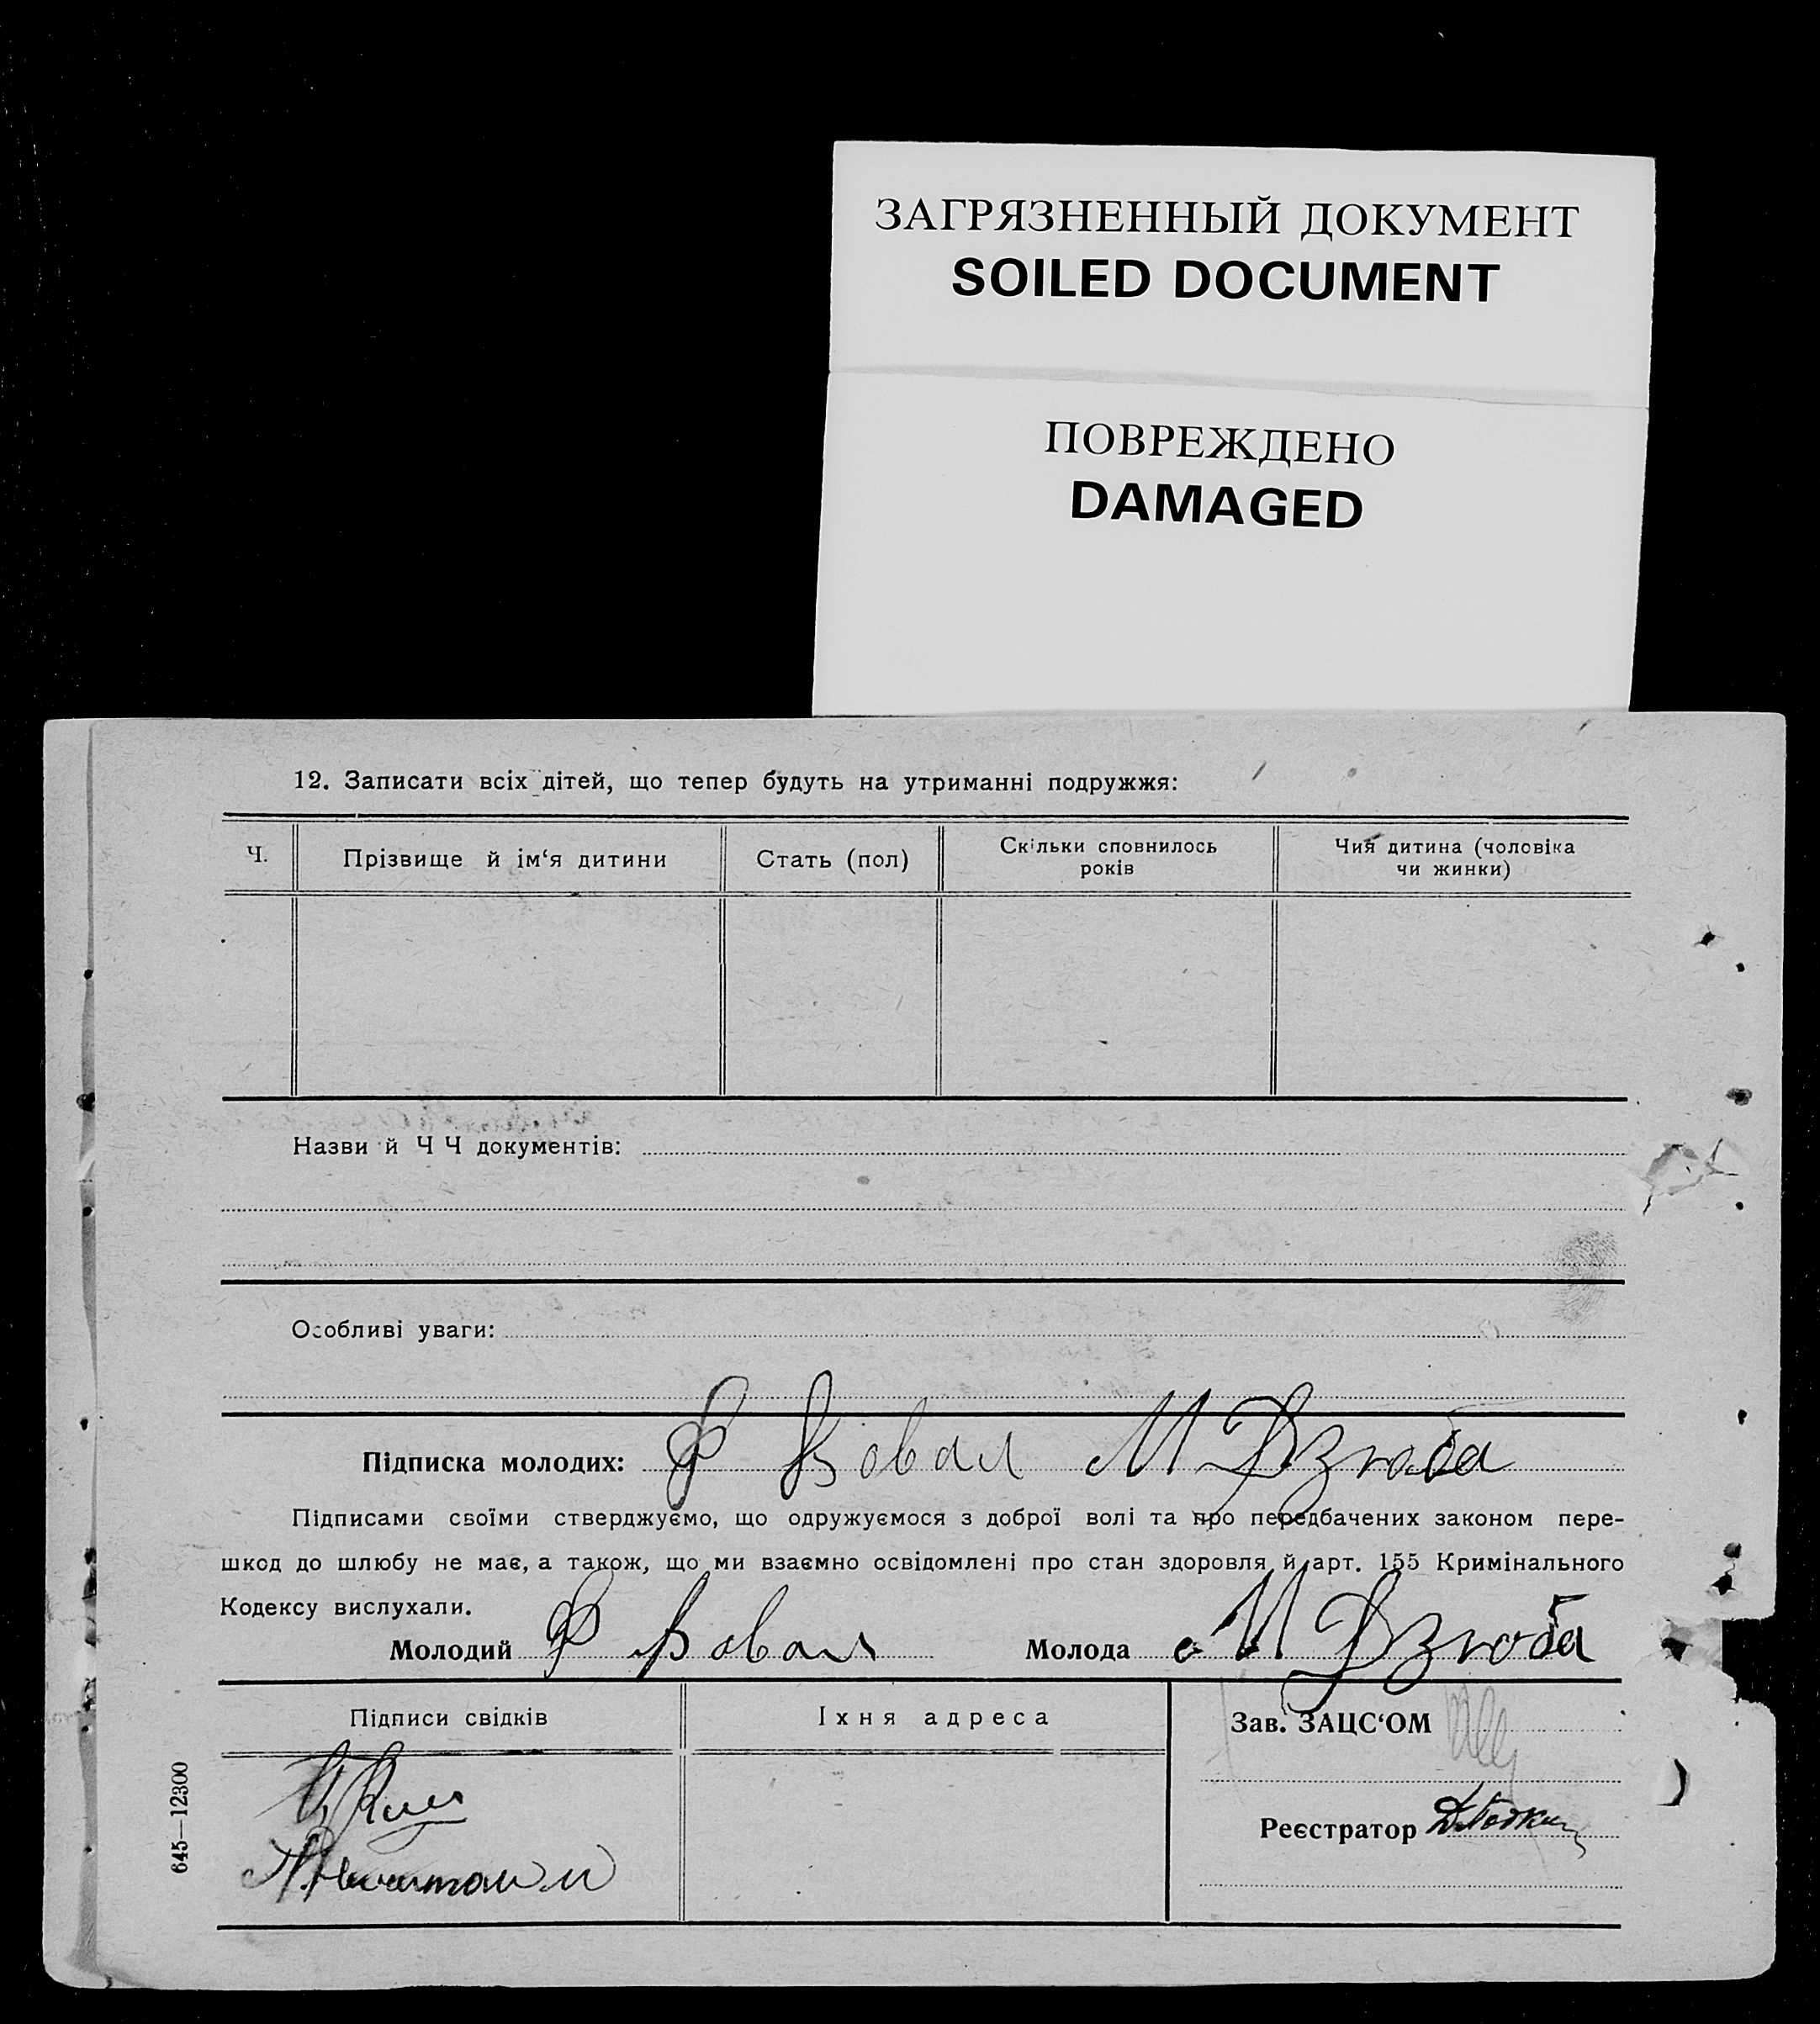 ЗАГРЯЗНЕННЫЙ ДОКУМЕНТ
SOILED DOCUMENT
ПОВРЕЖДЕНО
DAMAGED
12. Записати всіх дітей, що тепер будуть на утриманні подружжя:
Ч. Прізвище й ім‘я дитини Стать (пол) Скільки сповнилось років Чия дитина (чоловіка чи жинки)
Назви й Ч Ч документів:
Особливі уваги:
Підписка молодих: Ф Коваль М Дзюба
Підписами своїми стверджуємо, що одружуємося з доброї волі та про передбачених законом пере-
шкод до шлюбу не має, а також, що ми взаємно освідомлені про стан здоровля й арт. 155 Кримінального
Кодексу вислухали.
Молодий Ф Коваль Молода М Дзюба
Підписи свідків Їхня адреса Зав. ЗАЦС‘ОМ
Реєстратор
645—12300